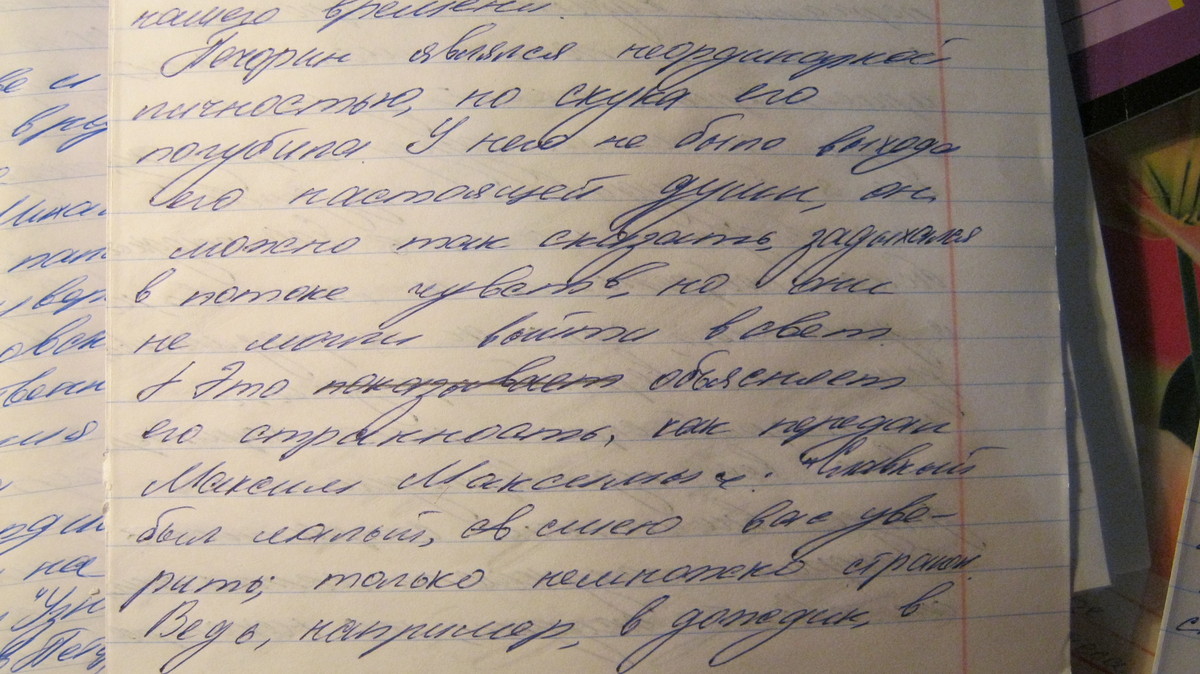 нашего времени.
Печорин являлся неординарной
личностью, но скука его
погубила. У него не было выхода
его настоящей души, он,
можно так сказать, задыхался
в потоке чувств, но они
не могли выйти в свет.
Это показывает объясняет
его странность, как передал
Максим Максимыч: "Славный
был малый, смею вас уве-
рить; только немножко странен.
Ведь, например, в дождик, в